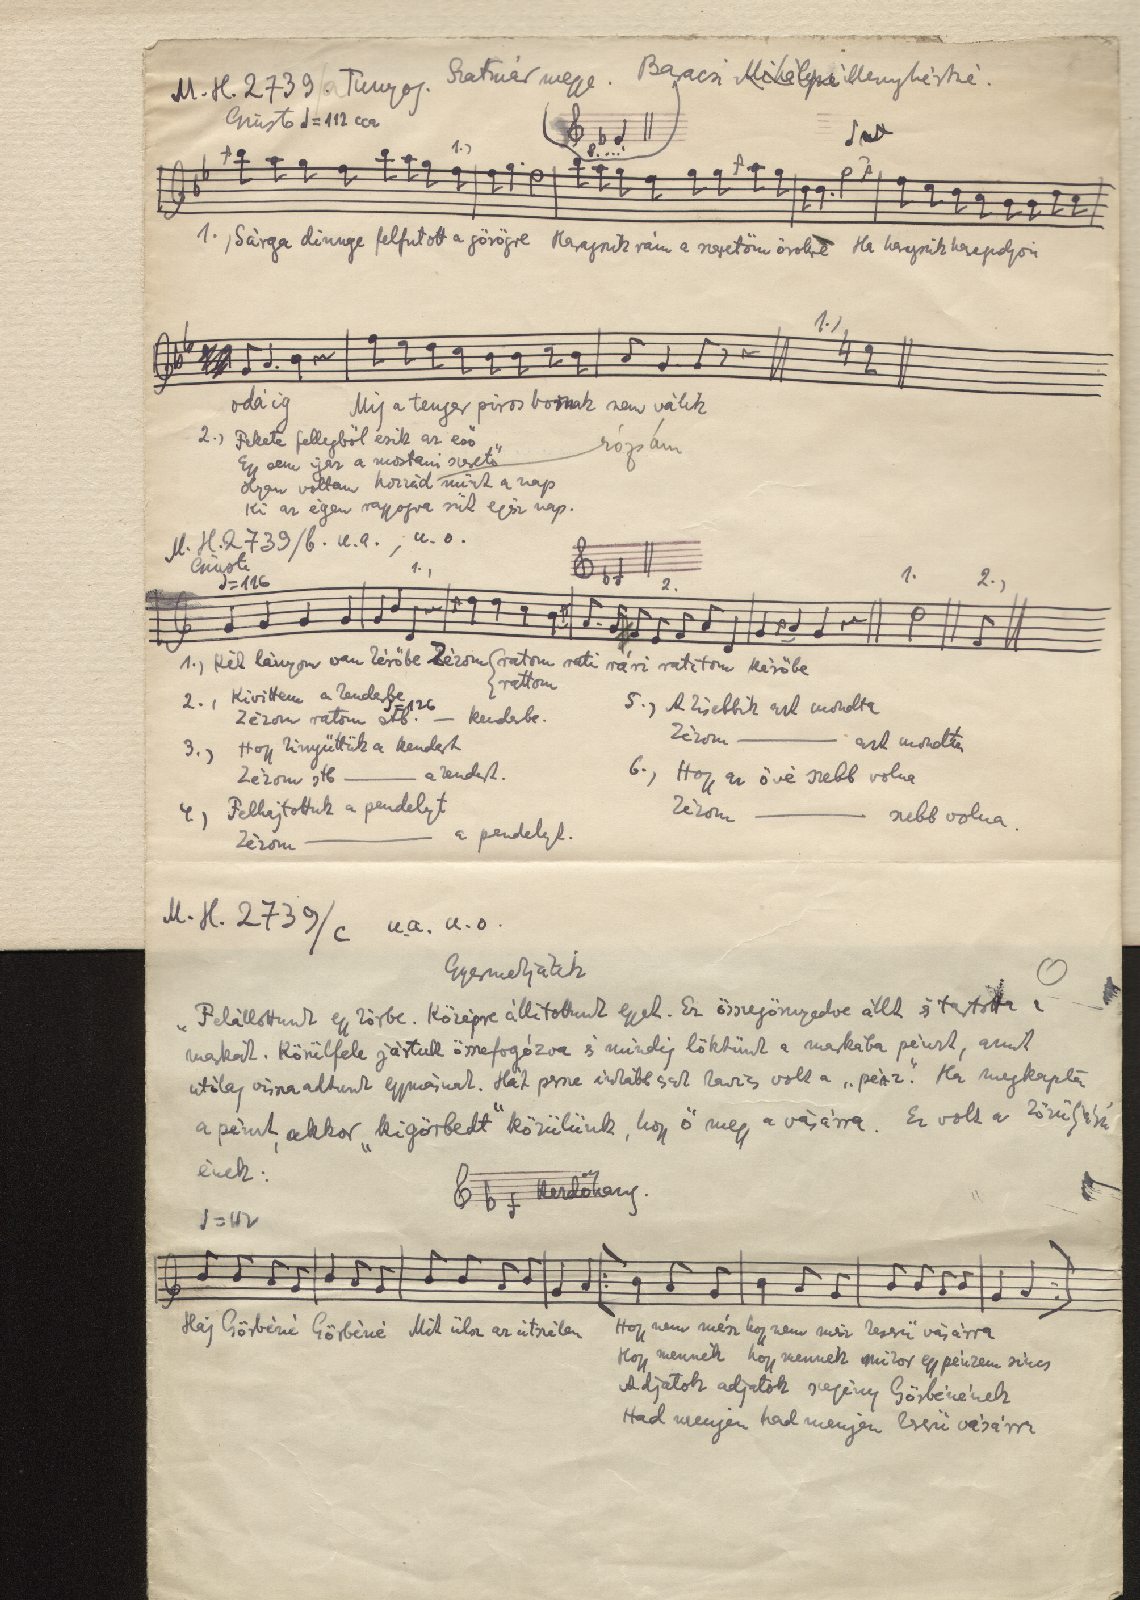 M. H. 2739/a Tunyog. Szatmár megye. Baracsi Mihályné Menyhértné.
Giusto ♩=112 cca
8.....
1.,
1., Sárga dinnye felfutott a görögre Haragszik rám a szeretöm örökre Ha haragszik haragudjon
1.,
odáig Mig a tenger piros bornak nem válik
2., Fekete fellegböl esik az esö
Egy sem igaz a mostani szeretö rózsám
Olyan voltam hozzád mint a nap
Ki az égen ragyogva süt egész nap.
M. H. 2739/b. u.a., u.o.
Giusto
♩=116
1., 2. 1. 2.,
1., Két lányom van Zérőbe Zézom ratom rati rári ratitom kérőbe
rattom
2., Kivittem a kenderbe
♩=126
Zézom ratom stb. — kenderbe.
3., Hogy kinyüttük a kendert
Zézom stb — a kendert.
4., Felhajtottuk a pendelyt
Zézom — a pendelyt.
5., A kisebbik azt mondta
Zézom — azt mondta
6., Hogy az övé szebb volna
Zézom — szebb volna.
M. H. 2739/c u.a. u.o.
Gyermekjáték
„Felállottunk egy körbe. Középre állitottunk egyet. Ez összegörnyedve állt s tartotta a
markát. Körülfele jártunk összefogózva s mindig löktünk a markába pénzt, amit
utólag visszaadtunk egymásnak. Hát persze inkább csak kavics volt a „pénz". Ha megkapta
a pénzt, akkor „kigörbedt" közülünk, hogy ö megy a vásárra. Ez volt a
ének:
Kezdöhang.
♩=112
Háj Görbéné Görbéné Mit ülsz az utszélen Hogy nem mész hogy nem mész Keszü vásárra
Hogy mennék hogy mennék mikor egy pénzem sincs
Adjatok adjatok szegény Görbénének
Had menjen had menjen Keszü vásárra